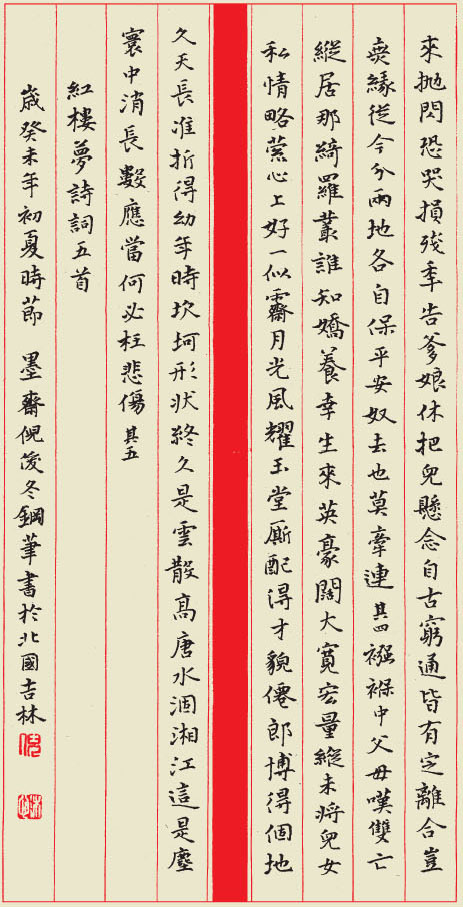 來抛閃恐哭損殘秊告爹娘休把兒懸念自古窮通皆有定離合豈
無緣從今分兩地各自保平安奴去也莫牽連其四襁褓中父母嘆雙亡
縱居那綺羅叢誰知嬌養幸生來英豪闊大寬宏量縱未將兒女
私情略縈心上好一似霽月光風耀玉堂厮配得才貌僊郎博得個地
久天長准折得幼年時坎坷形狀終久是雲散高唐水涸湘江這是塵
寰中消長數應當何必枉悲傷其五
紅樓夢詩詞五首
歲癸未年初夏時節 墨齋倪俊冬鋼筆書於北國吉林